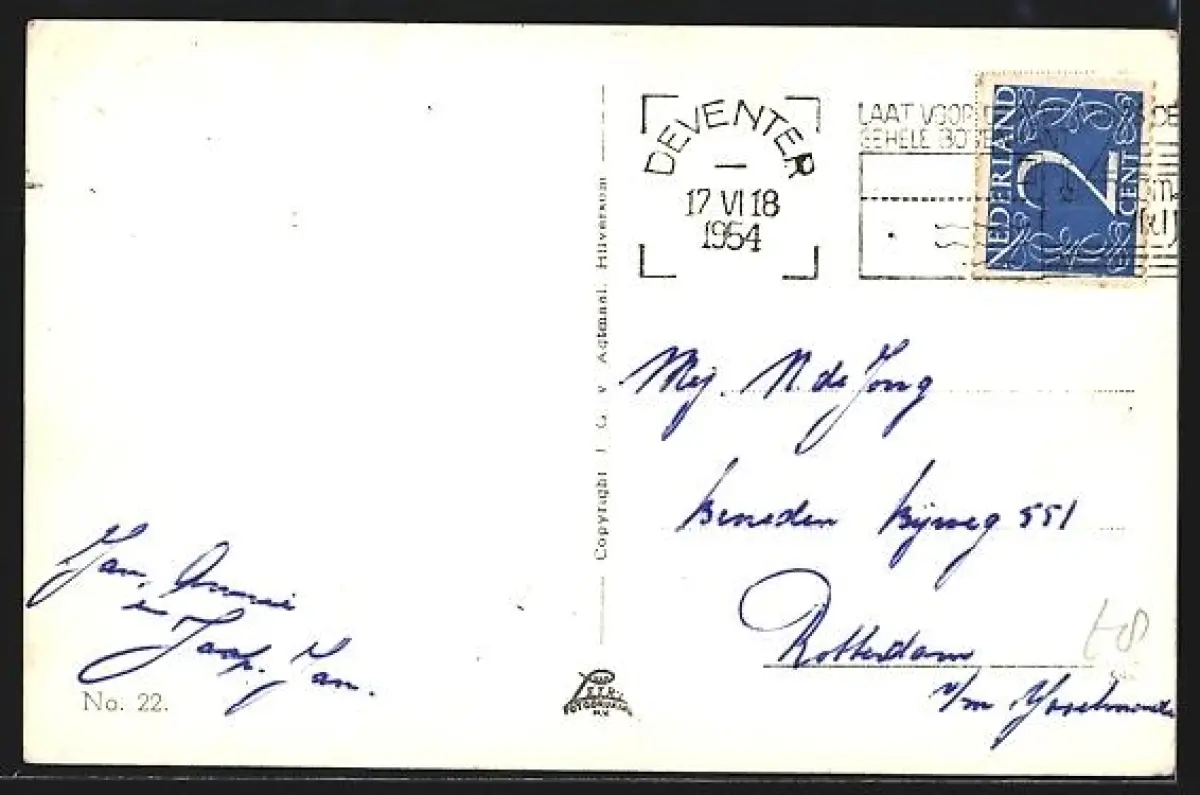 DEVENTER
17 VI 18
1954
LAAT VOOR
GEHELE
NEDERLAND
2
CENT
Mej. N. de Jong
Beneden Rijweg 551
Rotterdam
v/m IJsselmonde
Jan, Annie
en
Jaap-Jan.
No. 22.
Copyright J. G. v. Agtmaal, Hilversum
N.V.